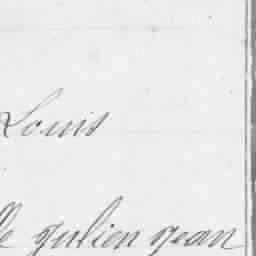 Louis
julien jean